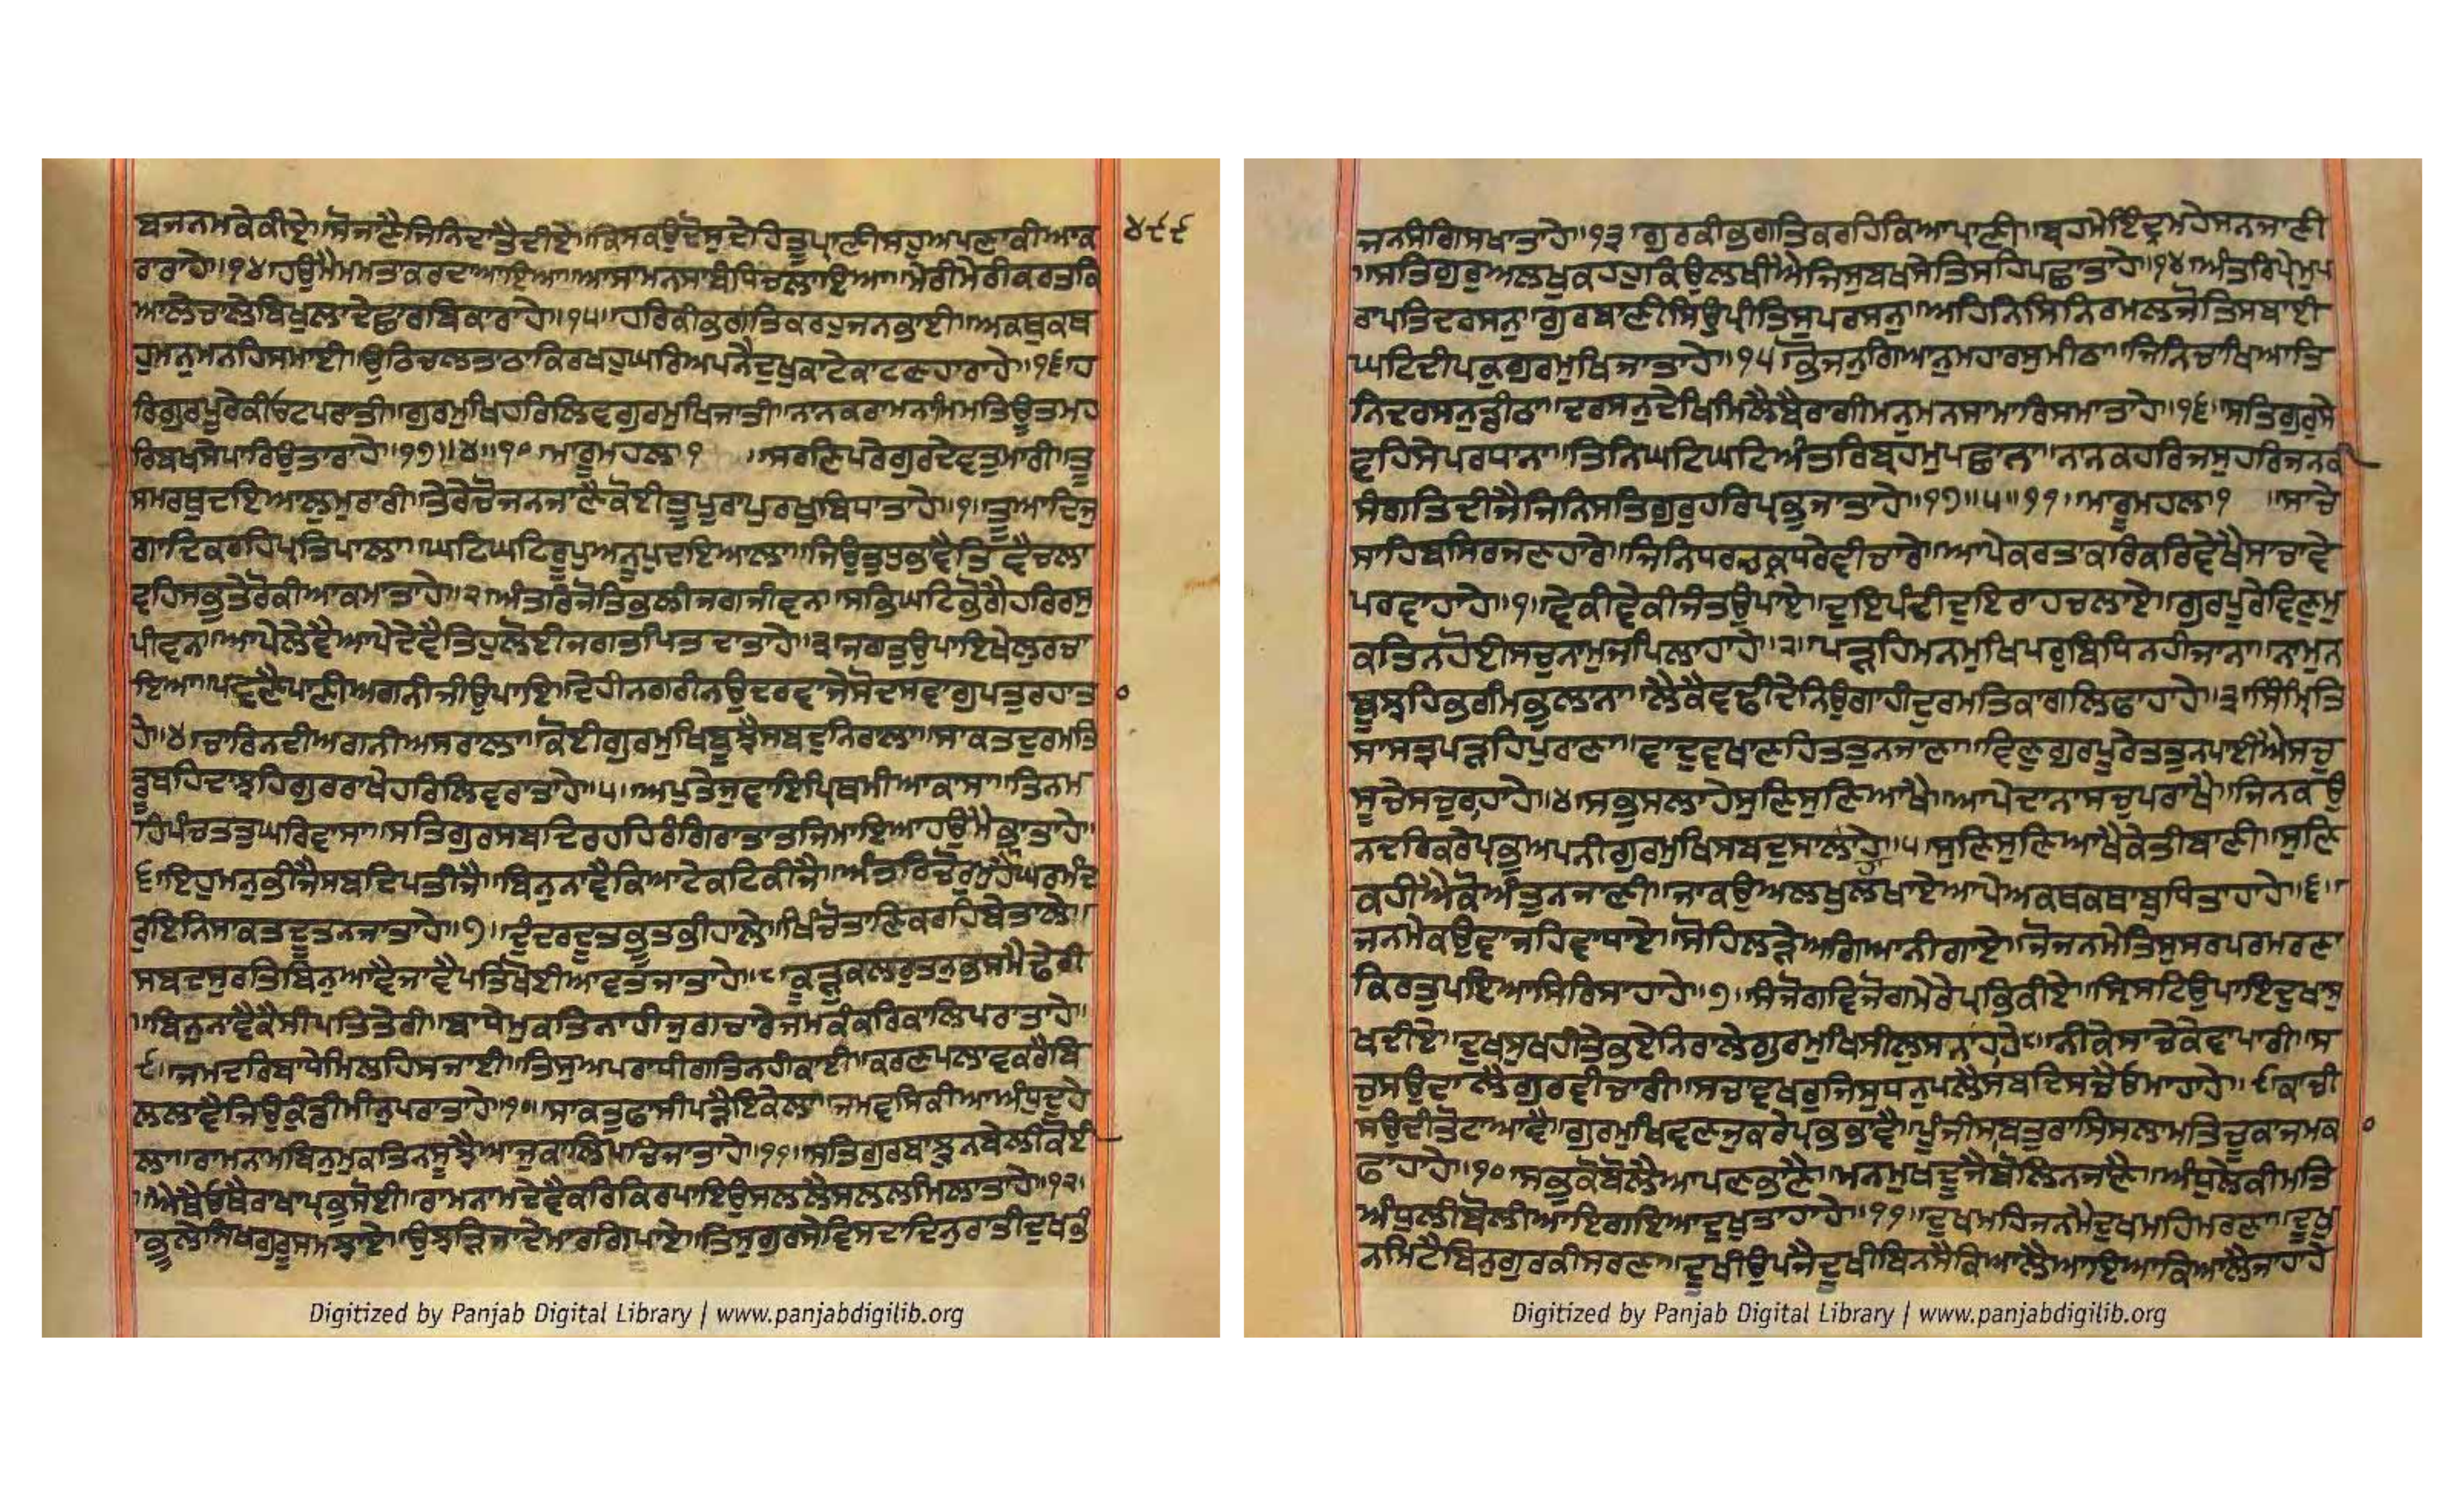 ਬਜਨਮਕੇਕੀਏ॥ਸੋਜਾਣੈਜਿਨਿਦਾਤੈਦੀਏ॥ਕਿਸਕਉਦੋਸੁਦੇਹਿਤੂਪ੍ਰਾਣੀਸਹੁਅਪਣਾਕੀਆਕ
ਰਾਰਾਹੇ॥੧੪॥ਹਉਮੈਮਮਤਾਕਰਦਾਆਇਆ॥ਆਸਾਮਨਸਾਬੰਧਿਚਲਾਇਆ॥ਮੇਰੀਮੇਰੀਕਰਤਕਿ
ਆਲੇਚਾਲੇਬਿਖੁਲਾਦੇਛਾਰਬਿਕਾਰਾਹੇ॥੧੫॥ਹਰਿਕੀਭਗਤਿਕਰਹੁਜਨਭਾਈ॥ਅਕਥੁਕਥ
ਹੁਮਨੁਮਨਹਿਸਮਾਈ॥ਉਠਿਚਲਤਾਠਾਕਿਰਖਹੁਘਰਿਅਪਨੈਦੁਖੁਕਾਟੇਕਾਟਣਹਾਰਾਹੇ॥੧੬॥ਹ
ਰਿਗੁਰਪੂਰੇਕੀਓਟਪਰਾਤੀ॥ਗੁਰਮੁਖਿਹਰਿਲਿਵਗੁਰਮੁਖਿਜਾਤੀ॥ਨਾਨਕਰਾਮਨਾਮਿਮਤਿਊਤਮਹ
ਰਿਬਖਸੇਪਾਰਿਉਤਾਰਾਹੇ॥੧੭॥੪॥੧੦ ਮਾਰੂਮਹਲਾ੧ ॥ਸਰਣਿਪਰੇਗੁਰਦੇਵਤੁਮਾਰੀ॥ਤੂ
ਸਮਰਥੁਦਇਆਲੁਮੁਰਾਰੀ॥ਤੇਰੇਚੋਜਨਜਾਣੈਕੋਈਤੂਪੂਰਾਪੁਰਖੁਬਿਧਾਤਾਹੇ॥੧॥ਤੂਆਦਿਜੁ
ਗਾਦਿਕਰਹਿਪ੍ਰਤਿਪਾਲਾ॥ਘਟਿਘਟਿਰੂਪੁਅਨੂਪੁਦਇਆਲਾ॥ਜਿਉਤੁਧੁਭਾਵੈਤਿਵੈਚਲਾ
ਵਹਿਸਭੁਤੇਰੋਕੀਆਕਮਾਤਾਹੇ॥੨॥ਅੰਤਰਿਜੋਤਿਭਲੀਜਗਜੀਵਨ॥ਸਭਿਘਟਿਭੋਗੈਹਰਿਰਸੁ
ਪੀਵਨ॥ਆਪੇਲੇਵੈਆਪੇਦੇਵੈਤਿਹੁਲੋਈਜਗਤਪਿਤਦਾਤਾਹੇ॥੩॥ਜਗਤੁਉਪਾਇਖੇਲੁਰਚਾ
ਇਆ॥ਪਵਣੈਪਾਣੀਅਗਨੀਜੀਉਪਾਇ॥ਦੇਹੀਨਗਰੀਨਉਦਰਵਾਜੇਸੋਦਸਵਾਗੁਪਤੁਰਹਾਤਾ
ਹੇ॥੪॥ਚਾਰਿਨਦੀਅਗਨੀਅਸਰਾਲਾ॥ਕੋਈਗੁਰਮੁਖਿਬੂਝੈਸਬਦੁਨਿਰਾਲਾ॥ਸਾਕਤਦੁਰਮਤਿ
ਡੂਬਹਿਦਾਝਹਿਗੁਰਰਾਖੇਹਰਿਲਿਵਰਾਤਾਹੇ॥੫॥ਅਪੁਤੇਜੁਵਾਇਪ੍ਰਿਥਮੀਆਕਾਸਾ॥ਤਿਨਮ
ਹਿਪੰਚਤਤੁਘਰਿਵਾਸਾ॥ਸਤਿਗੁਰਸਬਦਿਰਹਹਿਰੰਗਿਰਾਤਾਤਜਿਮਾਇਆਹਉਮੈਭ੍ਰਾਤਾਹੇ॥
੬॥ਇਹੁਮਨੁਭੀਜੈਸਬਦਿਪਤੀਜੈ॥ਬਿਨੁਨਾਵੈਕਿਆਟੇਕਟਿਕੀਜੈ॥ਅੰਤਰਿਚੋਰੁਮੁਹੈਘਰੁਮੰਦ
ਰੁਇਨਿਸਾਕਤਦੂਤੁਨਜਾਤਾਹੇ॥੭॥ਦੁੰਦਰਦੂਤਭੂਤਭੀਹਾਲੇ॥ਖਿੰਚੋਤਾਣਿਕਰਹਿਬੇਤਾਲੇ॥
ਸਬਦਸੁਰਤਿਬਿਨੁਆਵੈਜਾਵੈਪਤਿਖੋਈਆਵਤਜਾਤਾਹੇ॥੮ਕੂੜੁਕਲਰੁਤਨੁਭਸਮੈਢੇਰੀ
॥ਬਿਨੁਨਾਵੈਕੈਸੀਪਤਿਤੇਰੀ॥ਬਾਧੇਮੁਕਤਿਨਾਹੀਜੁਗਚਾਰੇਜਮਕੰਕਰਿਕਾਲਿਪਰਾਤਾਹੇ॥
੯॥ਜਮਦਰਿਬਾਧੇਮਿਲਹਿਸਜਾਈ॥ਤਿਸੁਅਪਰਾਧੀਗਤਿਨਹੀਕਾਈ॥ਕਰਣਪਲਾਵਕਰੈਬਿ
ਲਲਾਵੈਜਿਉਕੁੰਡੀਮੀਨੁਪਰਾਤਾਹੇ॥੧੦॥ਸਾਕਤੁਫਾਸੀਪੜੈਇਕੇਲਾ॥ਜਮਵਸਿਕੀਆਅੰਧੁਦੁਹੇ
ਲਾ॥ਰਾਮਨਾਮਬਿਨੁਮੁਕਤਿਨਸੂਝੈਆਜੁਕਾਲਿਪਚਿਜਾਤਾਹੇ॥੧੧॥ਸਤਿਗੁਰਬਾਝੁਨਬੇਲੀਕੋਈ
॥ਐਥੈਓਥੈਰਾਖਾਪ੍ਰਭੁਸੋਈ॥ਰਾਮਨਾਮਦੇਵੈਕਰਿਕਿਰਪਾਇਉਸਲਲੈਸਲਲਮਿਲਾਤਾਹੇ॥੧੨॥
ਭੂਲੇਸਿਖਗੁਰੂਸਮਝਾਏ॥ਉਝੜਿਜਾਦੇਮਾਰਗਿਪਾਏ॥ਤਿਸੁਗੁਰਸੇਵਿਸਦਾਦਿਨੁਰਾਤੀਦੁਖਭੰ
੪੯੯
ਜਨਸੰਗਿਸਖਾਤਾਹੇ॥੧੩॥ਗੁਰਕੀਭਗਤਿਕਰਹਿਕਿਆਪ੍ਰਾਣੀ॥ਬ੍ਰਹਮੈਇੰਦ੍ਰਮਹੇਸਨਜਾਣੀ
॥ਸਤਿਗੁਰੁਅਲਖੁਕਹਹੁਕਿਉਲਖੀਐਜਿਸੁਬਖਸੇਤਿਸਹਿਪਛਾਤਾਹੇ॥੧੪॥ਅੰਤਰਿਪ੍ਰੇਮੁਪ
ਰਾਪਤਿਦਰਸਨੁ॥ਗੁਰਬਾਣੀਸਿਉਪ੍ਰੀਤਿਸੁਪਰਸਨੁ॥ਅਹਿਨਿਸਿਨਿਰਮਲਜੋਤਿਸਬਾਈ
ਘਟਿਦੀਪਕੁਗੁਰਮੁਖਿਜਾਤਾਹੇ॥੧੫ਭੋਜਨੁਗਿਆਨੁਮਹਾਰਸੁਮੀਠਾ॥ਜਿਨਿਚਾਖਿਆਤਿ
ਨਿਦਰਸਨੁਡੀਠਾ॥ਦਰਸਨੁਦੇਖਿਮਿਲੈਬੈਰਾਗੀਮਨੁਮਨਸਾਮਾਰਿਸਮਾਤਾਹੇ॥੧੬॥ਸਤਿਗੁਰੁਸੇ
ਵਹਿਸੇਪਰਧਾਨਾ॥ਤਿਨਿਘਟਿਘਟਿਅੰਤਰਿਬ੍ਰਹਮੁਪਛਾਨਾ॥ਨਾਨਕਹਰਿਜਸੁਹਰਿਜਨਕੀ
ਸੰਗਤਿਦੀਜੈਜਿਨਿਸਤਿਗੁਰੁਹਰਿਪ੍ਰਭੁਜਾਤਾਹੇ॥੧੭॥੫॥੧੧॥ਮਾਰੂਮਹਲਾ੧ ॥ਸਾਚੇ
ਸਾਹਿਬਸਿਰਜਣਹਾਰੇ॥ਜਿਨਿਧਰਚਕ੍ਰਧਰੇਵੀਚਾਰੇ॥ਆਪੇਕਰਤਾਕਰਿਕਰਿਵੇਖੈਸਾਚਾਵੇ
ਪਰਵਾਹਾਹੇ॥੧॥ਵੇਕੀਵੇਕੀਜੰਤਉਪਾਏ॥ਦੁਇਪੰਦੀਦੁਇਰਾਹਚਲਾਏ॥ਗੁਰਪੂਰੇਵਿਣੁਮੁ
ਕਤਿਨਹੋਈਸਚੁਨਾਮੁਜਪਿਲਾਹਾਹੇ॥੨॥ਪੜਹਿਮਨਮੁਖਪਰੁਬਿਧਿਨਹੀਜਾਨਾ॥ਨਾਮੁਨ
ਬੂਝਹਿਭਰਮਿਭੁਲਾਨਾ॥ਲੈਕੈਵਢੀਦੇਨਿਉਗਾਹੀਦੁਰਮਤਿਕਾਗਲਿਫਾਹਾਹੇ॥੩॥ਸਿੰਮ੍ਰਿਤਿ
ਸਾਸਤ੍ਰਪੜਹਿਪੁਰਾਣਾ॥ਵਾਦੁਵਖਾਣਹਿਤਤੁਨਜਾਣਾ॥ਵਿਣੁਗੁਰਪੂਰੇਤਤੁਨਪਾਈਐਸਚ
ਸੂਚੇਸਚੁਰਾਹਾਹੇ॥੪॥ਸਭੁਸਾਲਾਹੇਸੁਣਿਸੁਣਿਆਖੈ॥ਆਪੇਦਾਨਾਸਚੁਪਰਾਖੈ॥ਜਿਨਕਉ
ਨਦਰਿਕਰੇਪ੍ਰਭੁਅਪਨੀਗੁਰਮੁਖਿਸਬਦੁਸਾਲਾਹੇ॥੫॥ਸੁਣਿਸੁਣਿਆਖੈਕੇਤੀਬਾਣੀ॥ਸੁਣਿ
ਕਹੀਐਕੋਅੰਤੁਨਜਾਣੀ॥ਜਾਕਉਅਲਖੁਲਖਾਏਆਪੇਅਕਥਕਥਾਬੁਧਿਤਾਹਾਹੇ॥੬॥
ਜਨਮੇਕਉਵਾਜਹਿਵਾਧਾਏ॥ਸੋਹਿਲੜੇਅਗਿਆਨੀਗਾਏ॥ਜੋਜਨਮੈਤਿਸੁਸਰਪਰਮਰਣਾ
ਕਿਰਤੁਪਇਆਸਿਰਿਸਾਹਾਹੇ॥੭॥ਸੰਜੋਗੁਵਿਜੋਗੁਮੇਰੈਪ੍ਰਭਿਕੀਏ॥ਸ੍ਰਿਸਟਿਉਪਾਇਦੁਖਾਸੁ
ਖਦੀਏ॥ਦੁਖਸੁਖਹੀਤੇਭਏਨਿਰਾਲੇਗੁਰਮੁਖਿਸੀਲੁਸਨਾਹਾਹੇ੮॥ਨੀਕੇਸਾਚੇਕੇਵਾਪਾਰੀ॥ਸ
ਚੁਸਉਦਾਲੈਗੁਰਵੀਚਾਰੀ॥ਸਚਾਵਖਰੁਜਿਸੁਧਨੁਪਲੈਸਬਦਿਸਚੈਓਮਾਹਾਹੇ॥੯ਕਾਚੀ
ਸਉਦੀਤੋਟਾਆਵੈ॥ਗੁਰਮੁਖਿਵਣਜੁਕਰੇਪ੍ਰਭਭਾਵੈ॥ਪੂੰਜੀਸਾਬਤੁਰਾਸਿਸਲਾਮਤਿਚੂਕਾਜਮਕਾ
ਫਾਹਾਹੇ॥੧੦ਸਭੁਕੋਬੋਲੈਆਪਣਭਾਣੈ॥ਮਨਮੁਖਦੂਜੈਬੋਲਿਨਜਾਣੈ॥ਅੰਧੁਲੇਕੀਮਤਿ
ਅੰਧੁਲੀਬੋਲੀਆਇਗਇਆਦੁਖੁਤਾਹਾਹੇ॥੧੧॥ਦੁਖਮਹਿਜਨਮੈਦੁਖਮਹਿਮਰਣਾ॥ਦੂਖੁ
ਨਮਿਟੈਬਿਨੁਗੁਰਕੀਸਰਣਾ॥ਦੂਖੀਉਪਜੈਦੂਖੀਬਿਨਸੈਕਿਆਲੈਆਇਆਕਿਆਲੈਜਾਹਾਹੇ
Digitized by Panjab Digital Library | www.panjabdigilib.org
Digitized by Panjab Digital Library | www.panjabdigilib.org